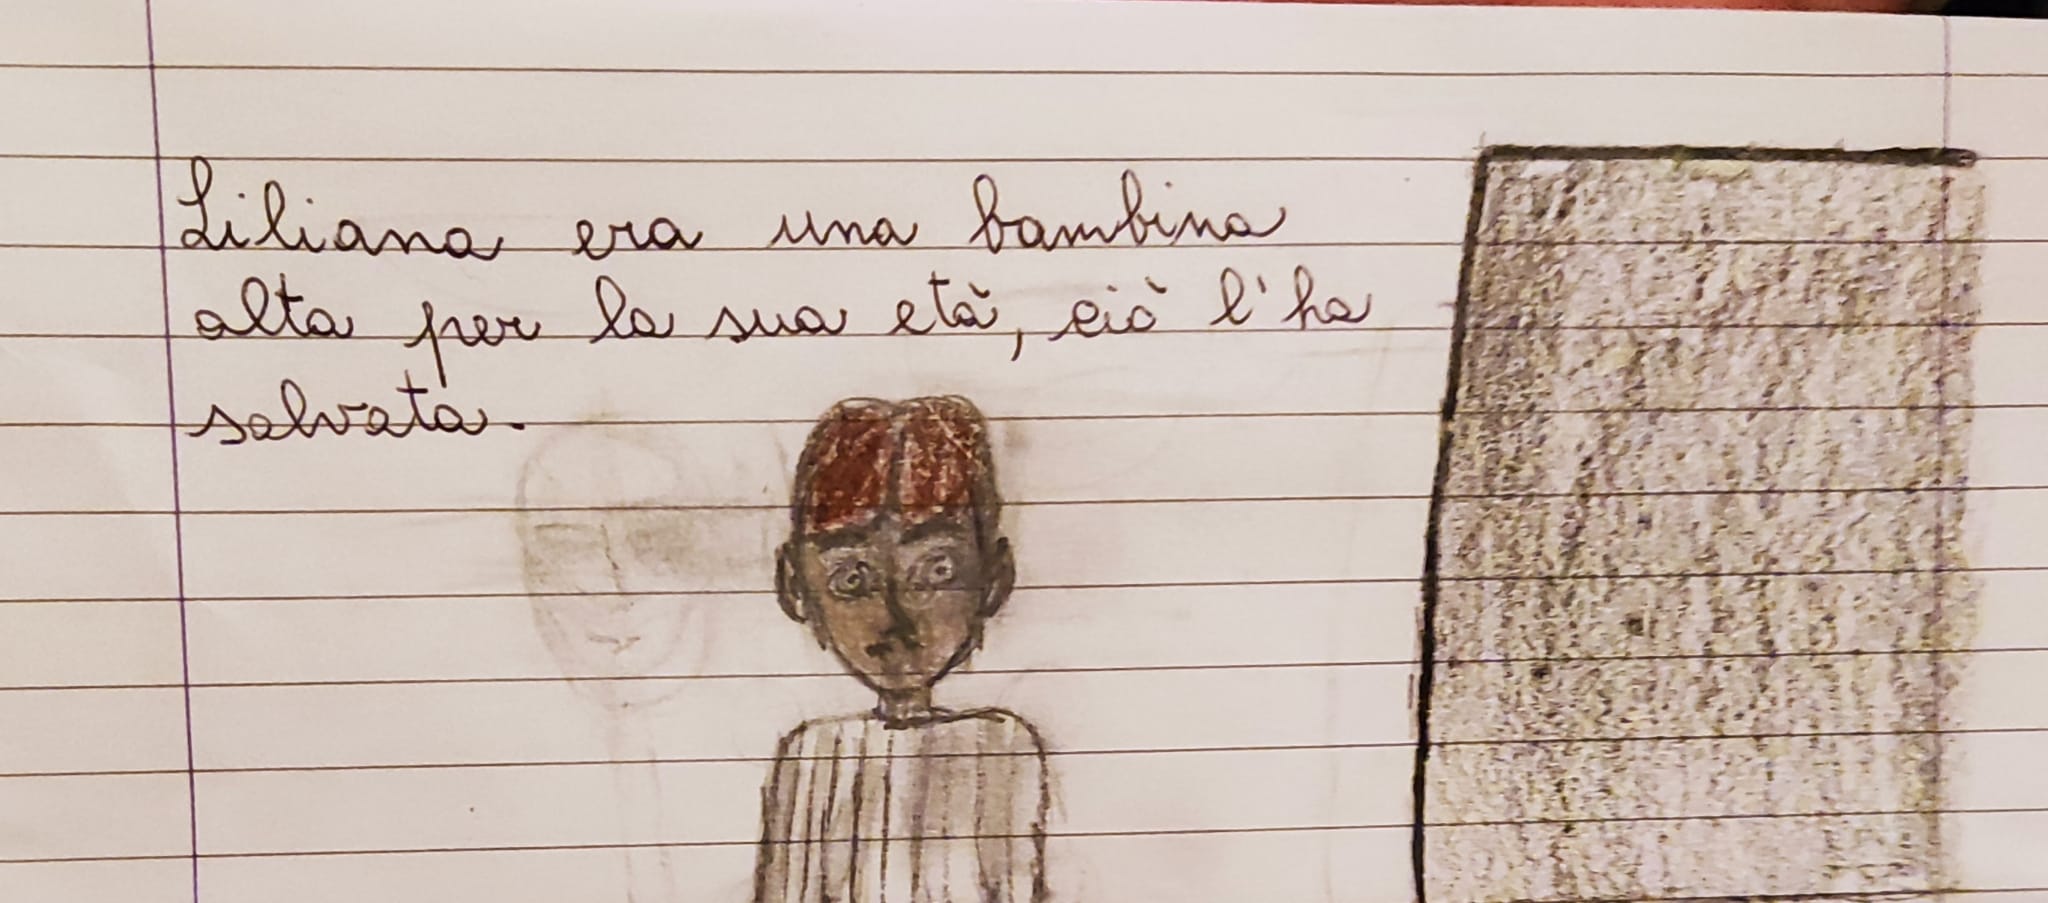 Liliana era una bambina
alta per la sua età, ciò l'ha
salvata.